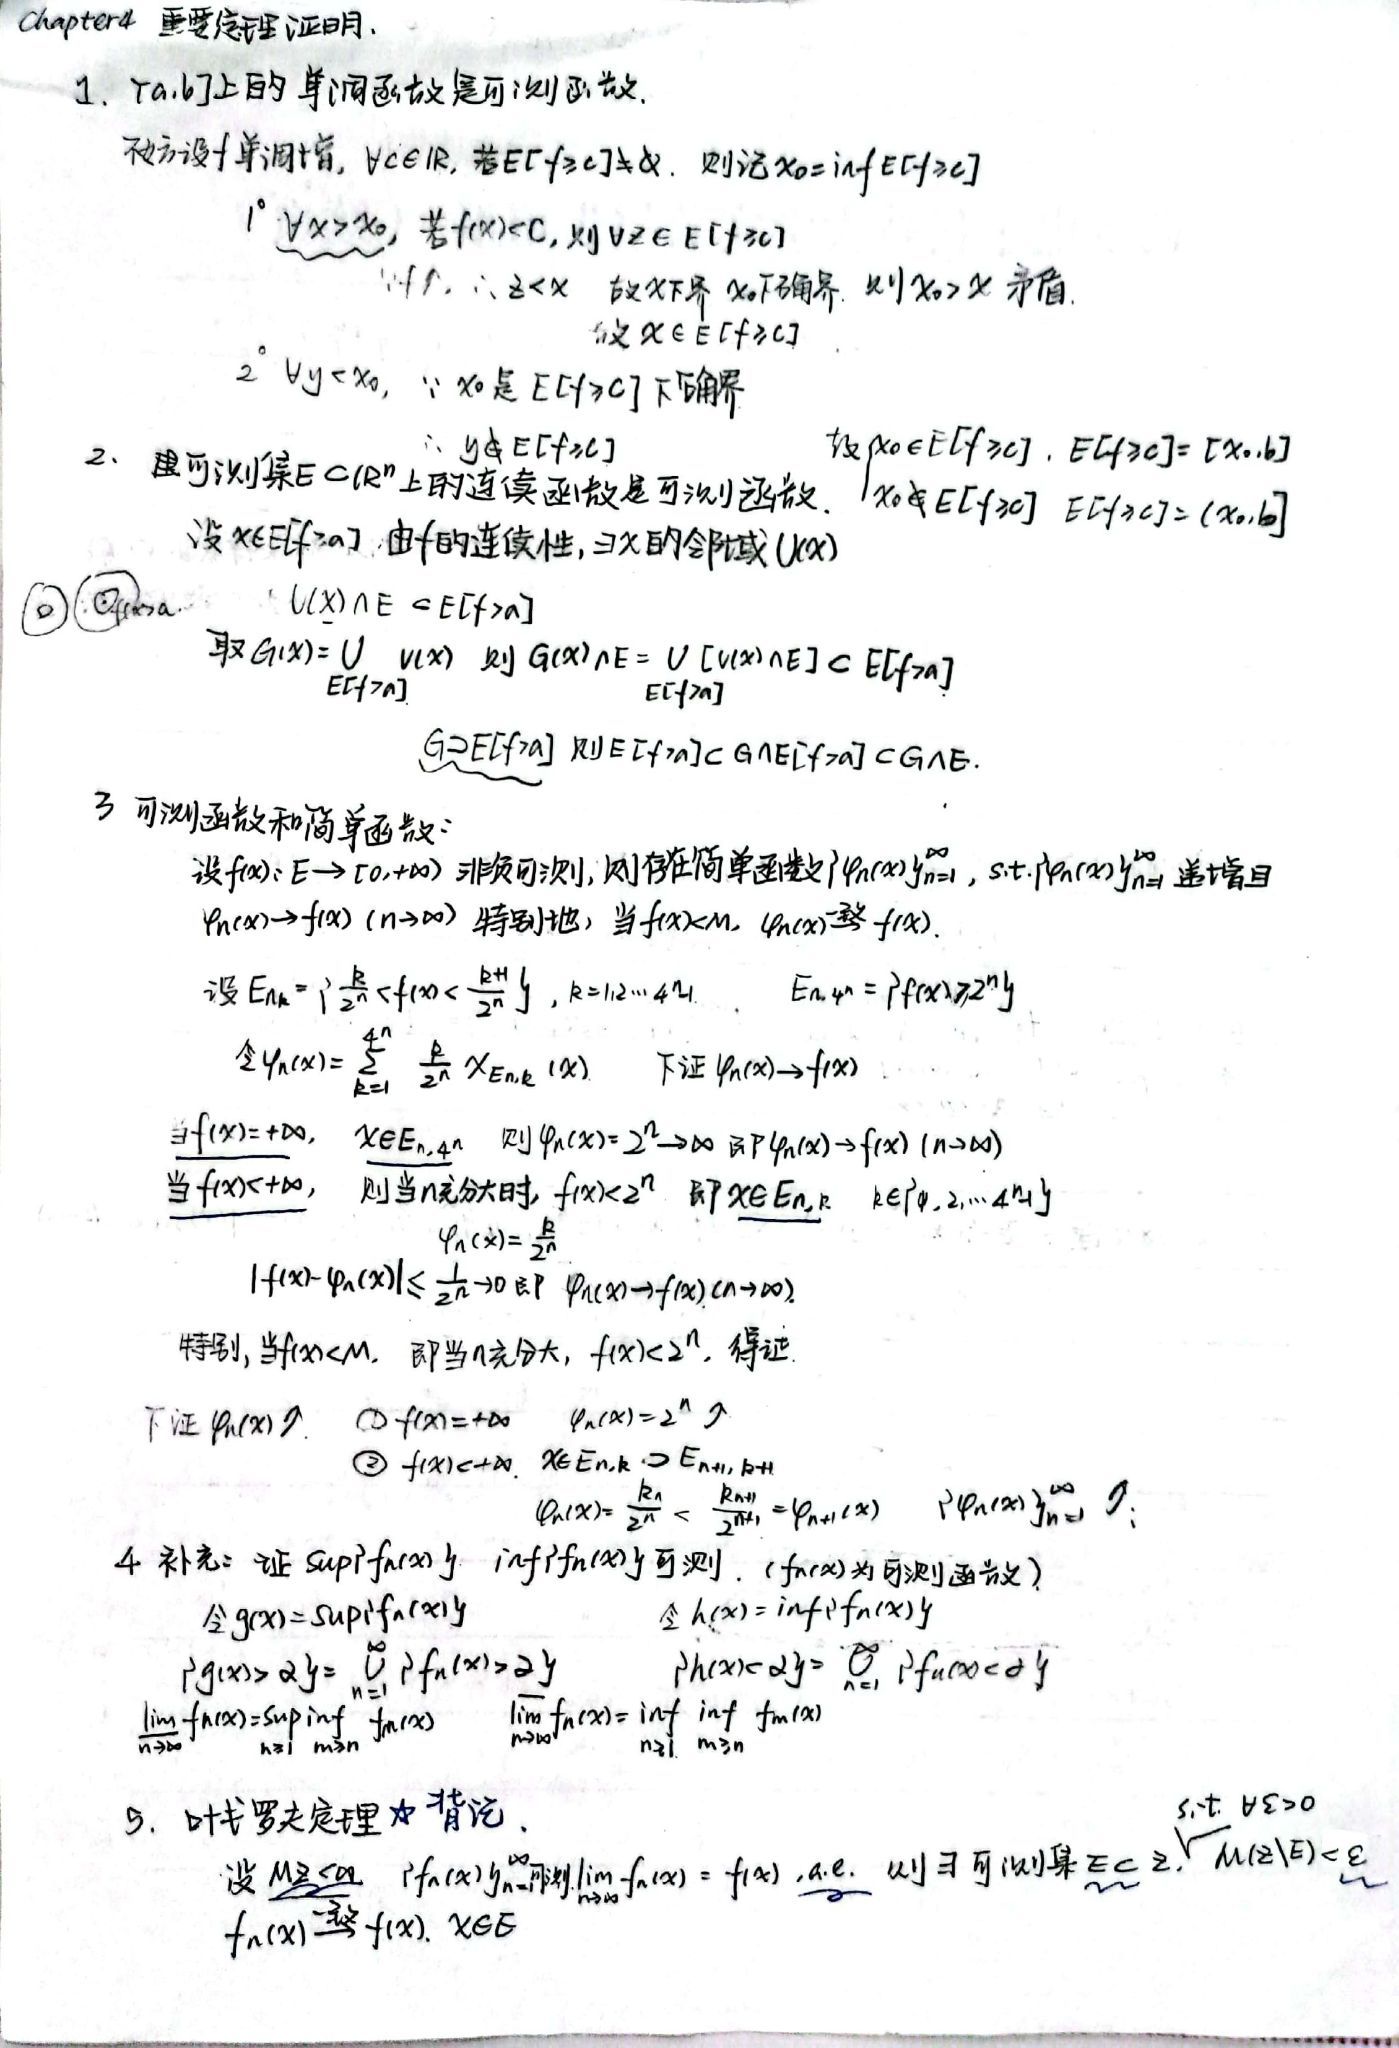 Chapter4 重要定理证明.
1. [a.b]上的单调函数是可测函数.
不妨设f单调增, ∀C∈IR, 若E[f≥c]≠∅. 则记x₀=inf E[f≥c]
1° ∀x>x₀, 若f(x)<C, 则∀z∈E[f≥c]
∵f↑. ∴z<x 故x下界 x₀下确界. 则x₀>x 矛盾.
故x∈E[f≥c]
2° ∀y<x₀, ∵x₀是E[f≥C]下确界
∴y∉E[f≥c]
故 x₀∈E[f≥c]. E[f≥c]=[x₀.b]
x₀∉E[f≥c] E[f≥c]=(x₀,b]
2. 可测集E⊂IRⁿ上的连续函数是可测函数.
设x∈E[f>a] 由f的连续性,∃x的邻域U(x)
f(x)>a
U(x)∩E⊂E[f>a]
取G(x)=∪ U(x) 则G(x)∩E=∪[U(x)∩E]⊂E[f>a]
E[f>a] E[f>a]
G⊃E[f>a] 则E[f>a]⊂G∩E[f>a]⊂G∩E.
3 可测函数和简单函数:
设f(x): E→[0,+∞) 非负可测,则存在简单函数{φn(x)}ₙ₌₁^∞, s.t.{φn(x)}ₙ₌₁^∞ 递增且
φn(x)→f(x) (n→∞) 特别地,当f(x)<M, φn(x)一致→f(x).
设Enk={k/2ⁿ<f(x)<(k+1)/2ⁿ}, k=1,2…4ⁿ-1. En,4ⁿ={f(x)≥2ⁿ}
令φn(x)=∑ₖ₌₁^4ⁿ k/2ⁿ χEn,k(x) 下证φn(x)→f(x)
当f(x)=+∞, x∈En,4ⁿ 则φn(x)=2ⁿ→∞ 即φn(x)→f(x) (n→∞)
当f(x)<+∞, 则当n充分大时, f(x)<2ⁿ 即x∈En,k k∈{1,2,…4ⁿ-1}
φn(x)=k/2ⁿ
|f(x)-φn(x)|≤1/2ⁿ→0 即φn(x)→f(x)(n→∞).
特别,当f(x)<M. 即当n充分大, f(x)<2ⁿ. 得证.
下证φn(x)↑. ① f(x)=+∞ φn(x)=2ⁿ↑
② f(x)<+∞. x∈En,k ⊃ En+1,k+1
φn(x)=kn/2ⁿ<kn+1/2ⁿ⁺¹=φn+1(x) {φn(x)}ₙ₌₁^∞ ↑;
4 补充: 证sup{fn(x)} inf{fn(x)}可测. (fn(x)为可测函数)
令g(x)=sup{fn(x)} 令h(x)=inf{fn(x)}
{g(x)>α}=∪ₙ₌₁^∞{fn(x)>α} {h(x)<α}=∪ₙ₌₁^∞{fn(x)<α}
lim(n→∞) fn(x)=sup(n≥1) inf(m≥n) fm(x) lim‾(n→∞) fn(x)=inf(n≥1) inf(m≥n) fm(x)
5. 叶戈罗夫定理☆背记.
s.t. ∀ε>0
设MZ<∞ {fn(x)}ₙ₌₁^∞可测 lim(n→∞) fn(x)=f(x).a.e. 则∃可测集E⊂Z. M(Z\E)<ε
fn(x)一致→f(x). x∈E